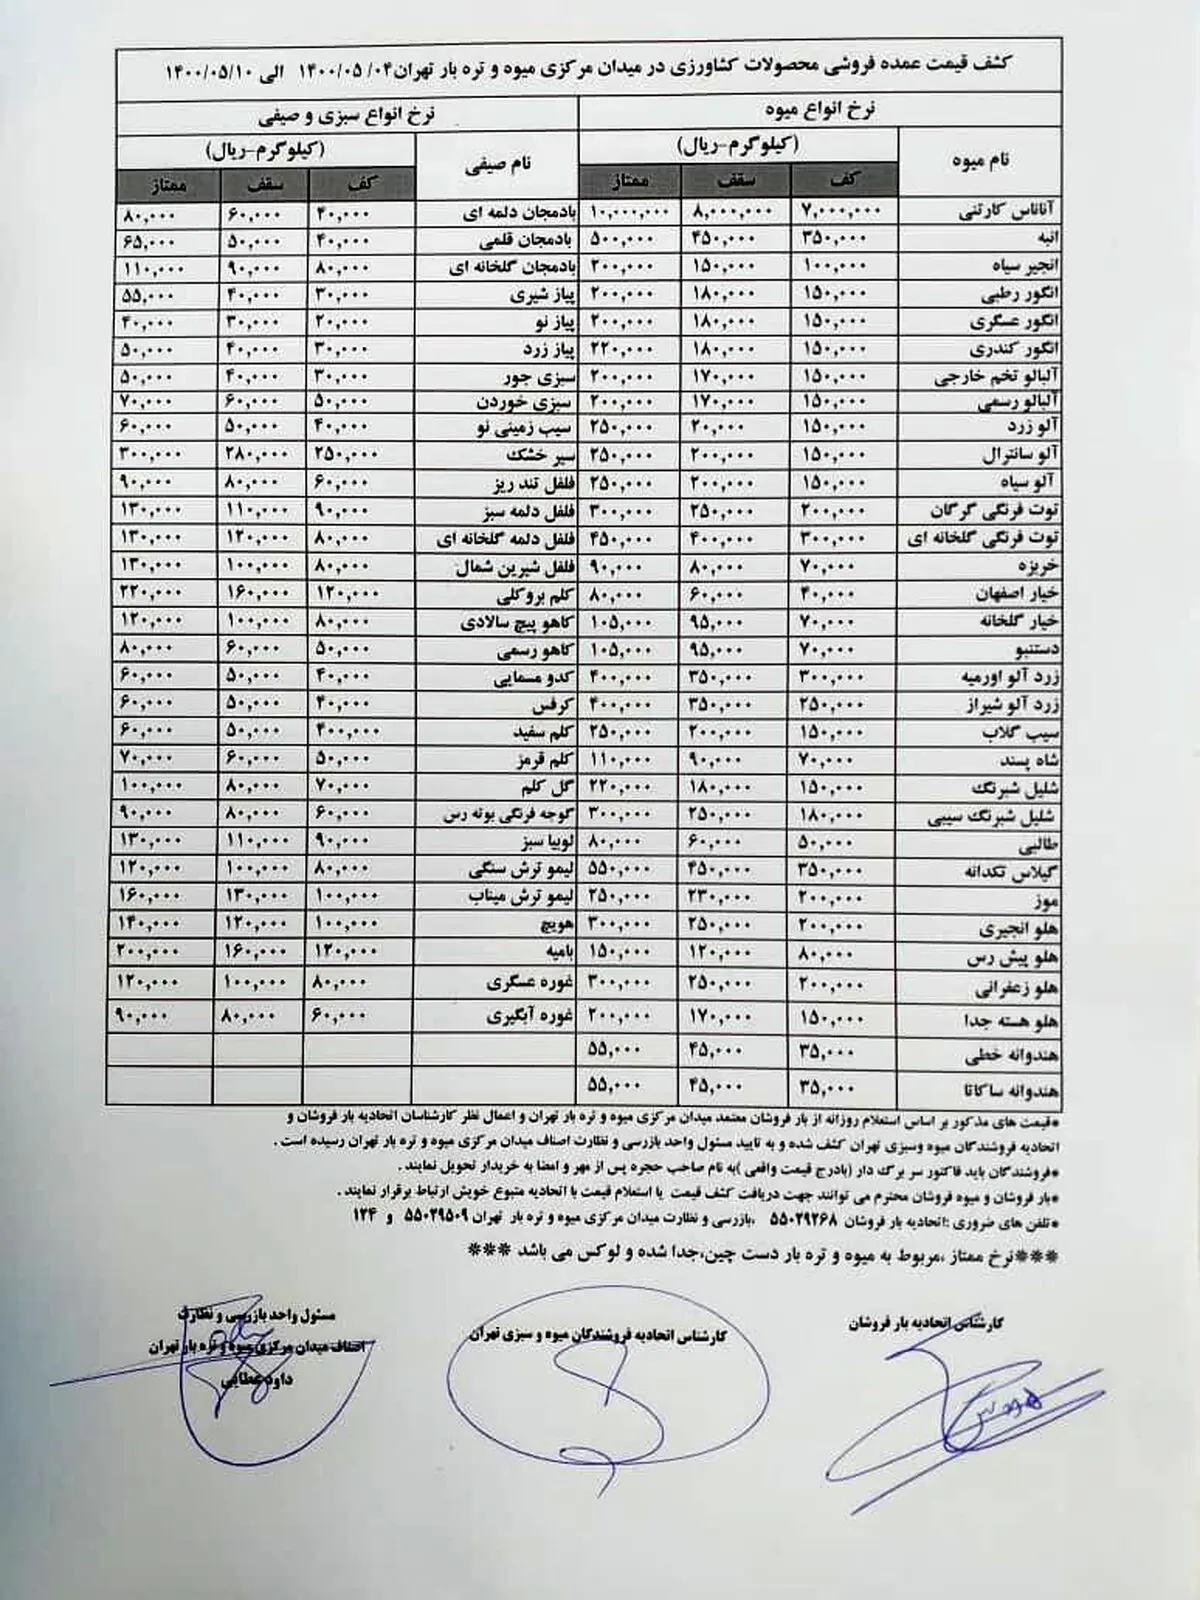 کشف قیمت عمده فروشی محصولات کشاورزی در میدان مرکزی میوه و تره بار تهران ۰۴/ ۱۴۰۰/۰۵ الی ۱۴۰۰/۰۵/۱۰
نرخ انواع میوه نرخ انواع سبزی و صیفی
نام میوه (کیلوگرم-ریال) نام صیفی (کیلوگرم-ریال)
کف سقف ممتاز کف سقف ممتاز
آناناس کارتنی ۷,۰۰۰,۰۰۰ ۸,۰۰۰,۰۰۰ ۱۰,۰۰۰,۰۰۰ بادمجان دلمه ای ۴۰,۰۰۰ ۶۰,۰۰۰ ۸۰,۰۰۰
انبه ۳۵۰,۰۰۰ ۴۵۰,۰۰۰ ۵۰۰,۰۰۰ بادمجان قلمی ۴۰,۰۰۰ ۵۰,۰۰۰ ۶۵,۰۰۰
انجیر سیاه ۱۰۰,۰۰۰ ۱۵۰,۰۰۰ ۲۰۰,۰۰۰ بادمجان گلخانه ای ۸۰,۰۰۰ ۹۰,۰۰۰ ۱۱۰,۰۰۰
انگور رطبی ۱۵۰,۰۰۰ ۱۸۰,۰۰۰ ۲۰۰,۰۰۰ پیاز شیری ۳۰,۰۰۰ ۴۰,۰۰۰ ۵۵,۰۰۰
انگور عسگری ۱۵۰,۰۰۰ ۱۸۰,۰۰۰ ۲۰۰,۰۰۰ پیاز نو ۲۰,۰۰۰ ۳۰,۰۰۰ ۴۰,۰۰۰
انگور کندری ۱۵۰,۰۰۰ ۱۸۰,۰۰۰ ۲۲۰,۰۰۰ پیاز زرد ۳۰,۰۰۰ ۴۰,۰۰۰ ۵۰,۰۰۰
آلبالو تخم خارجی ۱۵۰,۰۰۰ ۱۷۰,۰۰۰ ۲۰۰,۰۰۰ سبزی جور ۳۰,۰۰۰ ۴۰,۰۰۰ ۵۰,۰۰۰
آلبالو رسمی ۱۵۰,۰۰۰ ۱۷۰,۰۰۰ ۲۰۰,۰۰۰ سبزی خوردن ۵۰,۰۰۰ ۶۰,۰۰۰ ۷۰,۰۰۰
آلو زرد ۱۵۰,۰۰۰ ۲۰,۰۰۰ ۲۵۰,۰۰۰ سیب زمینی نو ۴۰,۰۰۰ ۵۰,۰۰۰ ۶۰,۰۰۰
آلو سانترال ۱۵۰,۰۰۰ ۲۰۰,۰۰۰ ۲۵۰,۰۰۰ سیر خشک ۲۵۰,۰۰۰ ۲۸۰,۰۰۰ ۳۰۰,۰۰۰
آلو سیاه ۱۵۰,۰۰۰ ۲۰۰,۰۰۰ ۲۵۰,۰۰۰ فلفل تند ریز ۶۰,۰۰۰ ۸۰,۰۰۰ ۹۰,۰۰۰
توت فرنگی گرگان ۲۰۰,۰۰۰ ۲۵۰,۰۰۰ ۳۰۰,۰۰۰ فلفل دلمه سبز ۹۰,۰۰۰ ۱۱۰,۰۰۰ ۱۳۰,۰۰۰
توت فرنگی گلخانه ای ۳۰۰,۰۰۰ ۴۰۰,۰۰۰ ۴۵۰,۰۰۰ فلفل دلمه گلخانه ای ۸۰,۰۰۰ ۱۲۰,۰۰۰ ۱۳۰,۰۰۰
خربزه ۷۰,۰۰۰ ۸۰,۰۰۰ ۹۰,۰۰۰ فلفل شیرین شمال ۸۰,۰۰۰ ۱۰۰,۰۰۰ ۱۳۰,۰۰۰
خیار اصفهان ۴۰,۰۰۰ ۶۰,۰۰۰ ۸۰,۰۰۰ کلم بروکلی ۱۲۰,۰۰۰ ۱۶۰,۰۰۰ ۲۲۰,۰۰۰
خیار گلخانه ۷۰,۰۰۰ ۹۵,۰۰۰ ۱۰۵,۰۰۰ کاهو پیچ سالادی ۸۰,۰۰۰ ۱۰۰,۰۰۰ ۱۲۰,۰۰۰
دستنبو ۷۰,۰۰۰ ۹۵,۰۰۰ ۱۰۵,۰۰۰ کاهو رسمی ۵۰,۰۰۰ ۶۰,۰۰۰ ۸۰,۰۰۰
زرد آلو اورمیه ۳۰۰,۰۰۰ ۳۵۰,۰۰۰ ۴۰۰,۰۰۰ کدو مسمایی ۴۰,۰۰۰ ۵۰,۰۰۰ ۶۰,۰۰۰
زرد آلو شیراز ۲۵۰,۰۰۰ ۳۵۰,۰۰۰ ۴۰۰,۰۰۰ کرفس ۴۰,۰۰۰ ۵۰,۰۰۰ ۶۰,۰۰۰
سیب گلاب ۱۵۰,۰۰۰ ۲۰۰,۰۰۰ ۲۵۰,۰۰۰ کلم سفید ۴۰۰,۰۰۰ ۵۰,۰۰۰ ۶۰,۰۰۰
شاه پسند ۷۰,۰۰۰ ۹۰,۰۰۰ ۱۱۰,۰۰۰ کلم قرمز ۵۰,۰۰۰ ۶۰,۰۰۰ ۷۰,۰۰۰
شلیل شبرنگ ۱۵۰,۰۰۰ ۱۸۰,۰۰۰ ۲۲۰,۰۰۰ گل کلم ۷۰,۰۰۰ ۸۰,۰۰۰ ۱۰۰,۰۰۰
شلیل شبرنگ سیبی ۱۸۰,۰۰۰ ۲۵۰,۰۰۰ ۳۰۰,۰۰۰ گوجه فرنگی بوته رس ۶۰,۰۰۰ ۸۰,۰۰۰ ۹۰,۰۰۰
طالبی ۵۰,۰۰۰ ۶۰,۰۰۰ ۸۰,۰۰۰ لوبیا سبز ۹۰,۰۰۰ ۱۱۰,۰۰۰ ۱۳۰,۰۰۰
گیلاس تکدانه ۳۵۰,۰۰۰ ۴۵۰,۰۰۰ ۵۵۰,۰۰۰ لیمو ترش سنگی ۸۰,۰۰۰ ۱۰۰,۰۰۰ ۱۲۰,۰۰۰
موز ۲۰۰,۰۰۰ ۲۳۰,۰۰۰ ۲۵۰,۰۰۰ لیمو ترش میناب ۱۰۰,۰۰۰ ۱۳۰,۰۰۰ ۱۶۰,۰۰۰
هلو انجیری ۲۰۰,۰۰۰ ۲۵۰,۰۰۰ ۳۰۰,۰۰۰ هویج ۱۰۰,۰۰۰ ۱۲۰,۰۰۰ ۱۴۰,۰۰۰
هلو پیش رس ۸۰,۰۰۰ ۱۲۰,۰۰۰ ۱۵۰,۰۰۰ بامیه ۱۲۰,۰۰۰ ۱۶۰,۰۰۰ ۲۰۰,۰۰۰
هلو زعفرانی ۲۰۰,۰۰۰ ۲۵۰,۰۰۰ ۳۰۰,۰۰۰ غوره عسگری ۸۰,۰۰۰ ۱۰۰,۰۰۰ ۱۲۰,۰۰۰
هلو هسته جدا ۱۵۰,۰۰۰ ۱۷۰,۰۰۰ ۲۰۰,۰۰۰ غوره آبگیری ۶۰,۰۰۰ ۸۰,۰۰۰ ۹۰,۰۰۰
هندوانه خطی ۳۵,۰۰۰ ۴۵,۰۰۰ ۵۵,۰۰۰
هندوانه ساکاتا ۳۵,۰۰۰ ۴۵,۰۰۰ ۵۵,۰۰۰
*قیمت های مذکور بر اساس استعلام روزانه از بار فروشان معتمد میدان مرکزی میوه و تره بار تهران و اعمال نظر کارشناسان اتحادیه بار فروشان و
اتحادیه فروشندگان میوه وسبزی تهران کشف شده و به تایید مسئول واحد بازرسی و نظارت اصناف میدان مرکزی میوه و تره بار تهران رسیده است .
*فروشندگان باید فاکتور سر برگ دار (بادرج قیمت واقعی )به نام صاحب حجره پس از مهر و امضا به خریدار تحویل نمایند .
*بار فروشان و میوه فروشان محترم می توانند جهت دریافت کشف قیمت یا استعلام قیمت با اتحادیه متبوع خویش ارتباط برقرار نمایند .
*تلفن های ضروری :اتحادیه بار فروشان ۵۵۰۲۹۲۶۸ ،بازرسی و نظارت میدان مرکزی میوه و تره بار تهران ۵۵۰۲۹۵۰۹ و ۱۲۴
***نرخ ممتاز ،مربوط به میوه و تره بار دست چین،جدا شده و لوکس می باشد ***
کارشناس اتحادیه بار فروشان
کارشناس اتحادیه فروشندگان میوه و سبزی تهران
مسئول واحد بازرسی و نظارت
اصناف میدان مرکزی میوه و تره بار تهران
داود عطایی